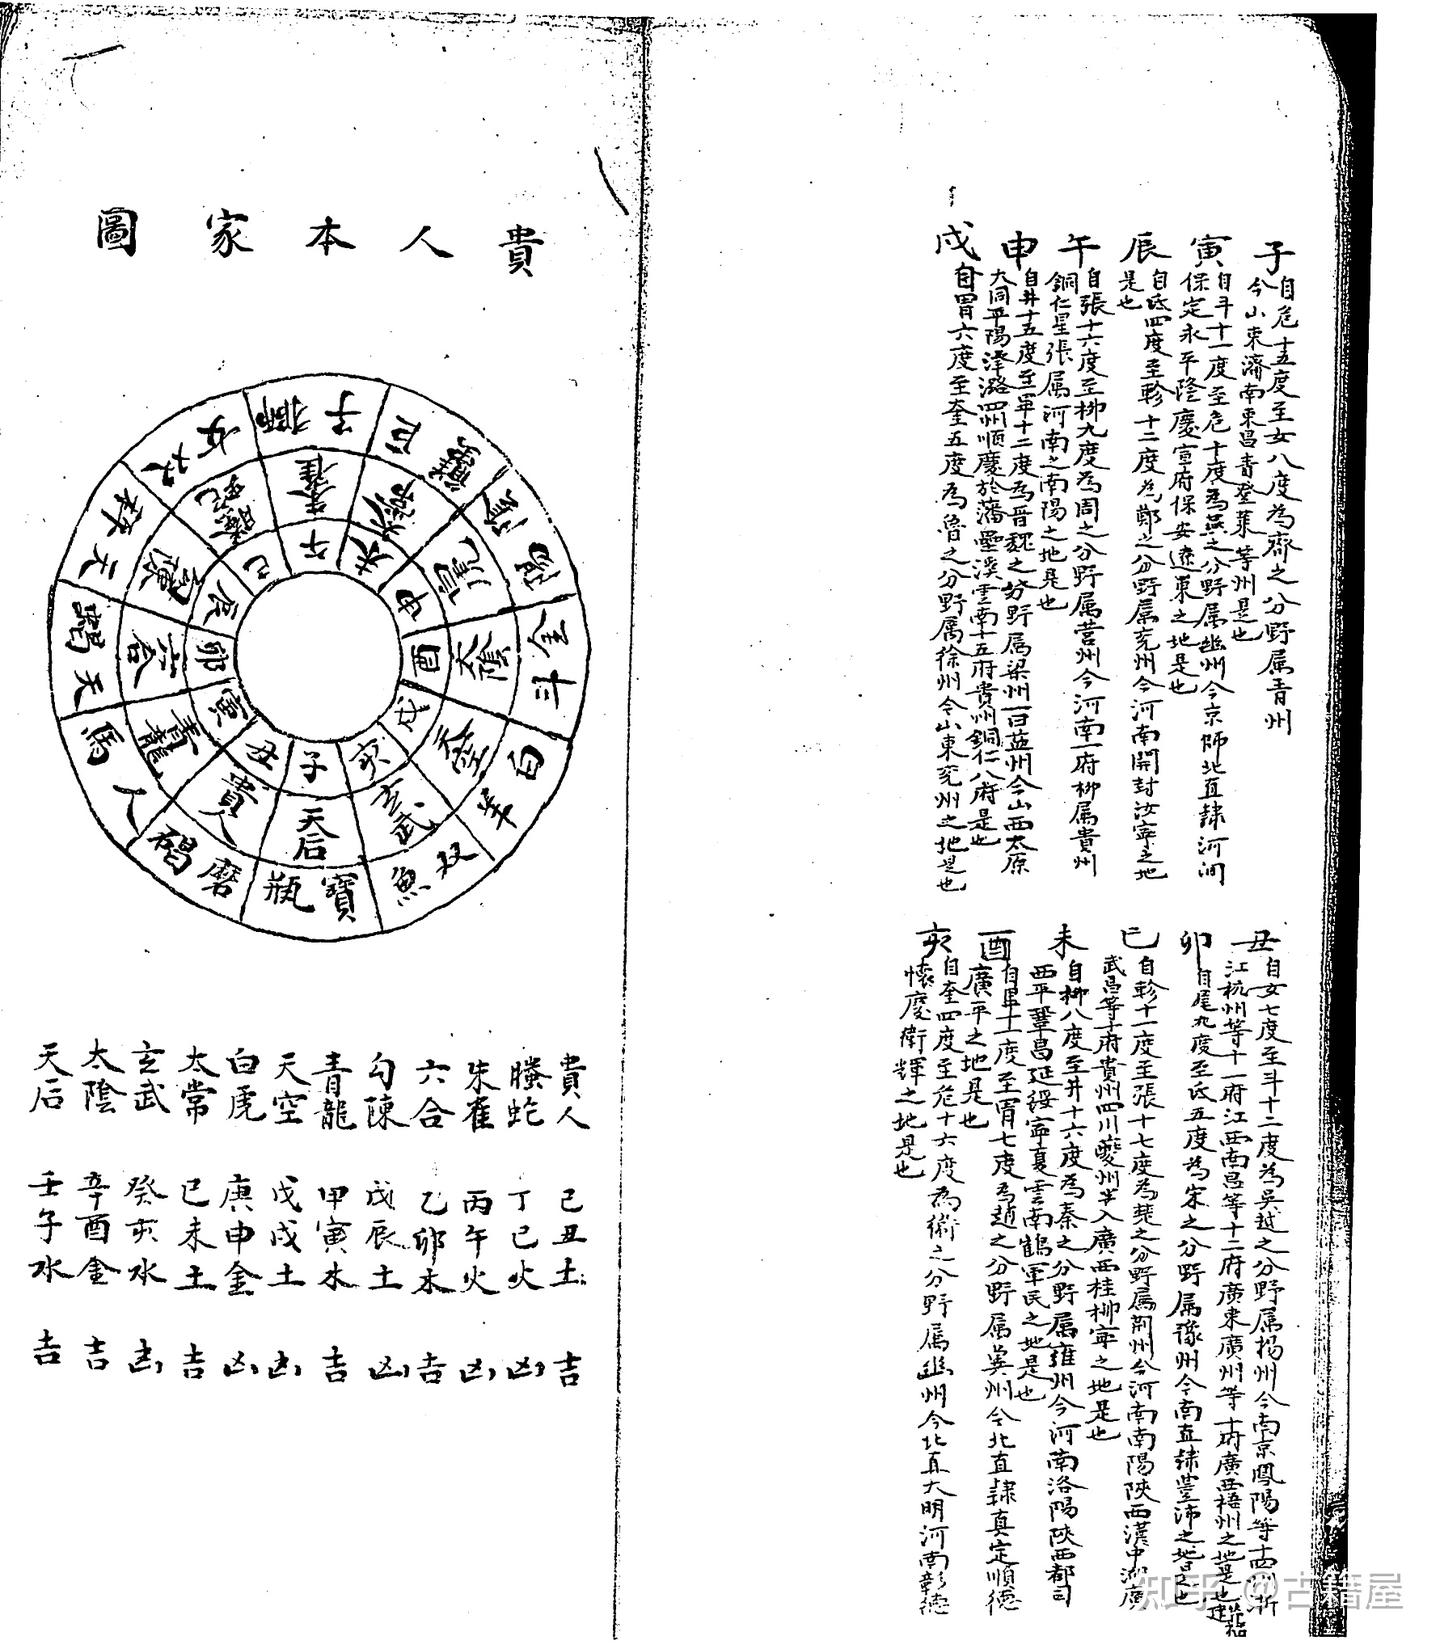 子
自危十五度至女八度為齊之分野属青州
今山東濟南東昌青登萊等州是也
寅
自斗十一度至危十度為燕之分野属幽州今京師北直隸河间
保定永平隆慶宣府保安遼東之地是也
辰
自氐四度至軫十二度為鄭之分野属兖州今河南開封汝寧之地
是也
午
自張十六度至柳九度為周之分野属营州今河南一府柳属貴州
銅仁星張属河南之南陽之地是也
申
自井十五度至畢十二度為晋魏之分野属梁州一曰益州今山西太原
大同平陽澤潞四州順慶於藩壘溪雲南十五府貴州銅仁八府是也
戌
自胃六度至奎五度為魯之分野属徐州今山東兖州之地是也
丑
自女七度至斗十二度為吳越之分野属揚州今南京鳳陽等十四州浙
江杭州等十一府江西南昌等十二府廣東廣州等十府廣西梧州之地是也
卯
自尾九度至氐五度為宋之分野属豫州今南直隸豊沛之地是也
巳
自軫十一度至張十七度為楚之分野属荆州今河南南陽陝西漢中湖廣
武昌等十府貴州四川夔州半入廣西桂柳寧之地是也
未
自柳八度至井十六度為秦之分野属雍州今河南洛陽陝西都司
西平鞏昌延綏寧夏雲南鶴军民之地是也
酉
自畢十一度至胃七度為趙之分野属冀州今北直隸真定順德
廣平之地是也
亥
自奎四度至危十六度為衛之分野属幽州今北直大明河南彰德
懷慶衛輝之地是也
貴人本家圖
獅子
巨蟹
陰陽
金牛
白羊
双魚
寶瓶
磨碣
人馬
天蝎
天秤
双女
朱雀
太常
白虎
太陰
天空
玄武
天后
貴人
青龍
六合
勾陳
螣蛇
午
未
申
酉
戌
亥
子
丑
寅
卯
辰
巳
貴人 己丑土 吉
螣蛇 丁巳火 凶
朱雀 丙午火 凶
六合 乙卯木 吉
勾陳 戊辰土 凶
青龍 甲寅木 吉
天空 戊戌土 凶
白虎 庚申金 凶
太常 己未土 吉
玄武 癸亥水 凶
太陰 辛酉金 吉
天后 壬子水 吉
知乎 @古籍屋